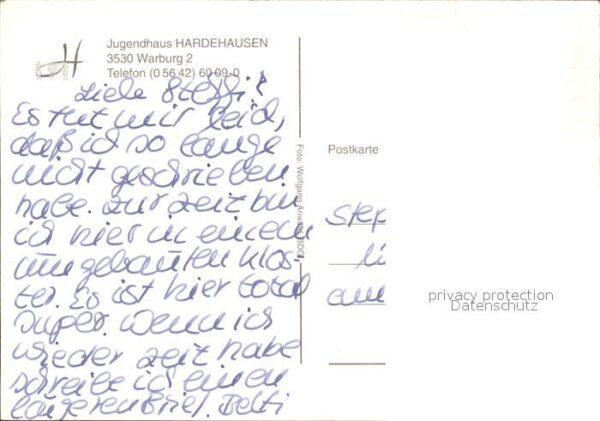 Jugendhaus HARDEHAUSEN
3530 Warburg 2
Telefon (0 56 42) 60 09-0
Liebe Steffi!
Es tut mir leid,
daß ich so lange
nicht geschrieben
habe. Zur Zeit bin
ich hier in einem
umgebauten Klos-
ter. Es ist hier total
super. Wenn ich
wieder Zeit habe
schreibe ich einen
längeren Brief. Betti
Foto: Wolfgang
Postkarte
Step
privacy protection
Datenschutz